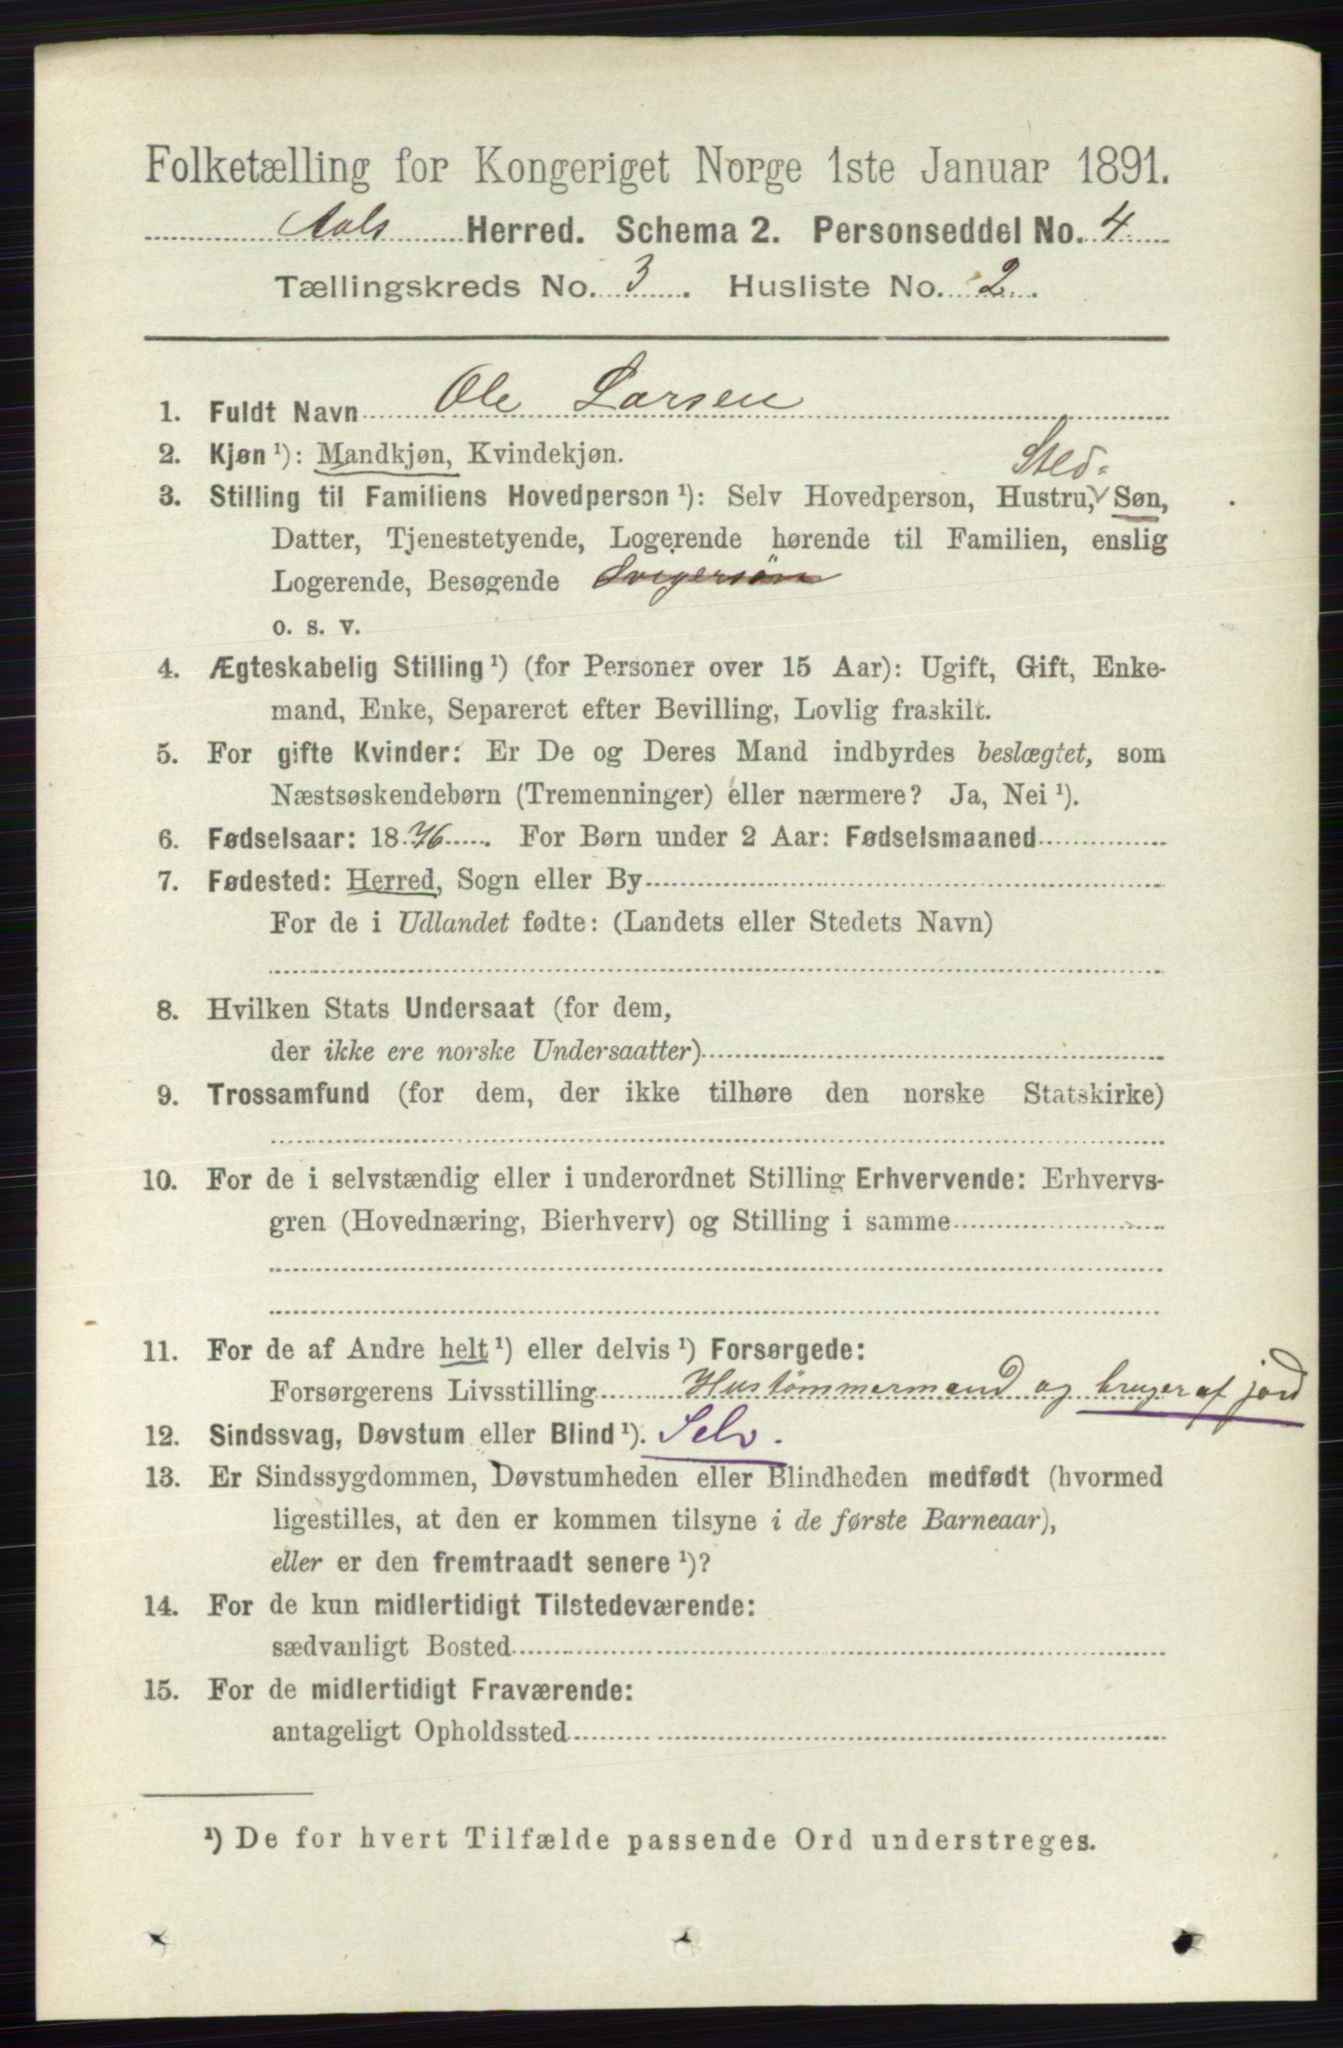 Folketælling for Kongeriget Norge 1ste Januar 1891.
Aals Herred. Schema 2. Personseddel No. 4
Tællingskreds No. 3. Husliste No. 2.
1. Fuldt Navn Ole Larsen
2. Kjøn ¹): Mandkjøn, Kvindekjøn.
Sted-
3. Stilling til Familiens Hovedperson ¹): Selv Hovedperson, Hustru, Søn,
Datter, Tjenestetyende, Logerende hørende til Familien, enslig
Logerende, Besøgende Svigersøn
o. s. v.
4. Ægteskabelig Stilling ¹) (for Personer over 15 Aar): Ugift, Gift, Enke-
mand, Enke, Separeret efter Bevilling, Lovlig fraskilt.
5. For gifte Kvinder: Er De og Deres Mand indbyrdes beslægtet, som
Næstsøskendebørn (Tremenninger) eller nærmere? Ja, Nei ¹).
6. Fødselsaar: 1876. For Børn under 2 Aar: Fødselsmaaned
7. Fødested: Herred, Sogn eller By
For de i Udlandet fødte: (Landets eller Stedets Navn)
8. Hvilken Stats Undersaat (for dem,
der ikke ere norske Undersaatter)
9. Trossamfund (for dem, der ikke tilhøre den norske Statskirke)
10. For de i selvstændig eller i underordnet Stilling Erhvervende: Erhvervs-
gren (Hovednæring, Bierhverv) og Stilling i samme
11. For de af Andre helt ¹) eller delvis ¹) Forsørgede:
Forsørgerens Livsstilling Hustømmermand og bruger af jord
12. Sindssvag, Døvstum eller Blind ¹). Selv.
13. Er Sindssygdommen, Døvstumheden eller Blindheden medfødt (hvormed
ligestilles, at den er kommen tilsyne i de første Barneaar),
eller er den fremtraadt senere ¹)?
14. For de kun midlertidigt Tilstedeværende:
sædvanligt Bosted
15. For de midlertidigt Fraværende:
antageligt Opholdssted
¹) De for hvert Tilfælde passende Ord understreges.